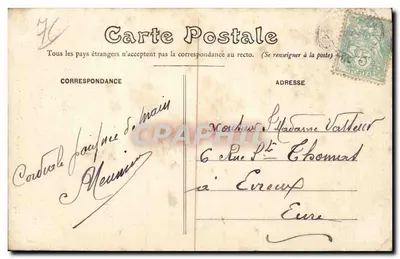 7€
Carte Postale
Tous les pays étrangers n'acceptent pas la correspondance au recto. (Se renseigner à la poste)
CORRESPONDANCE
ADRESSE
Cordiale poignée de main
Meunier
Monsieur & Madame Vatteur
6 Rue St Thomas
à Evreux
Eure
CARTES